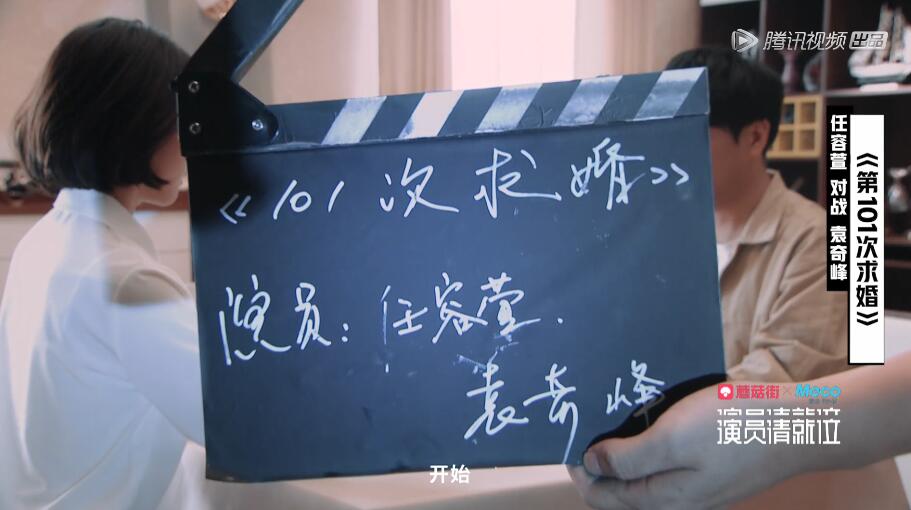 腾讯视频 出品
《101次求婚》
演员：任容萱.
袁奇峰
任容萱 对战 袁奇峰
《第101次求婚》
蘑菇街×Meco
演员请就位
开始